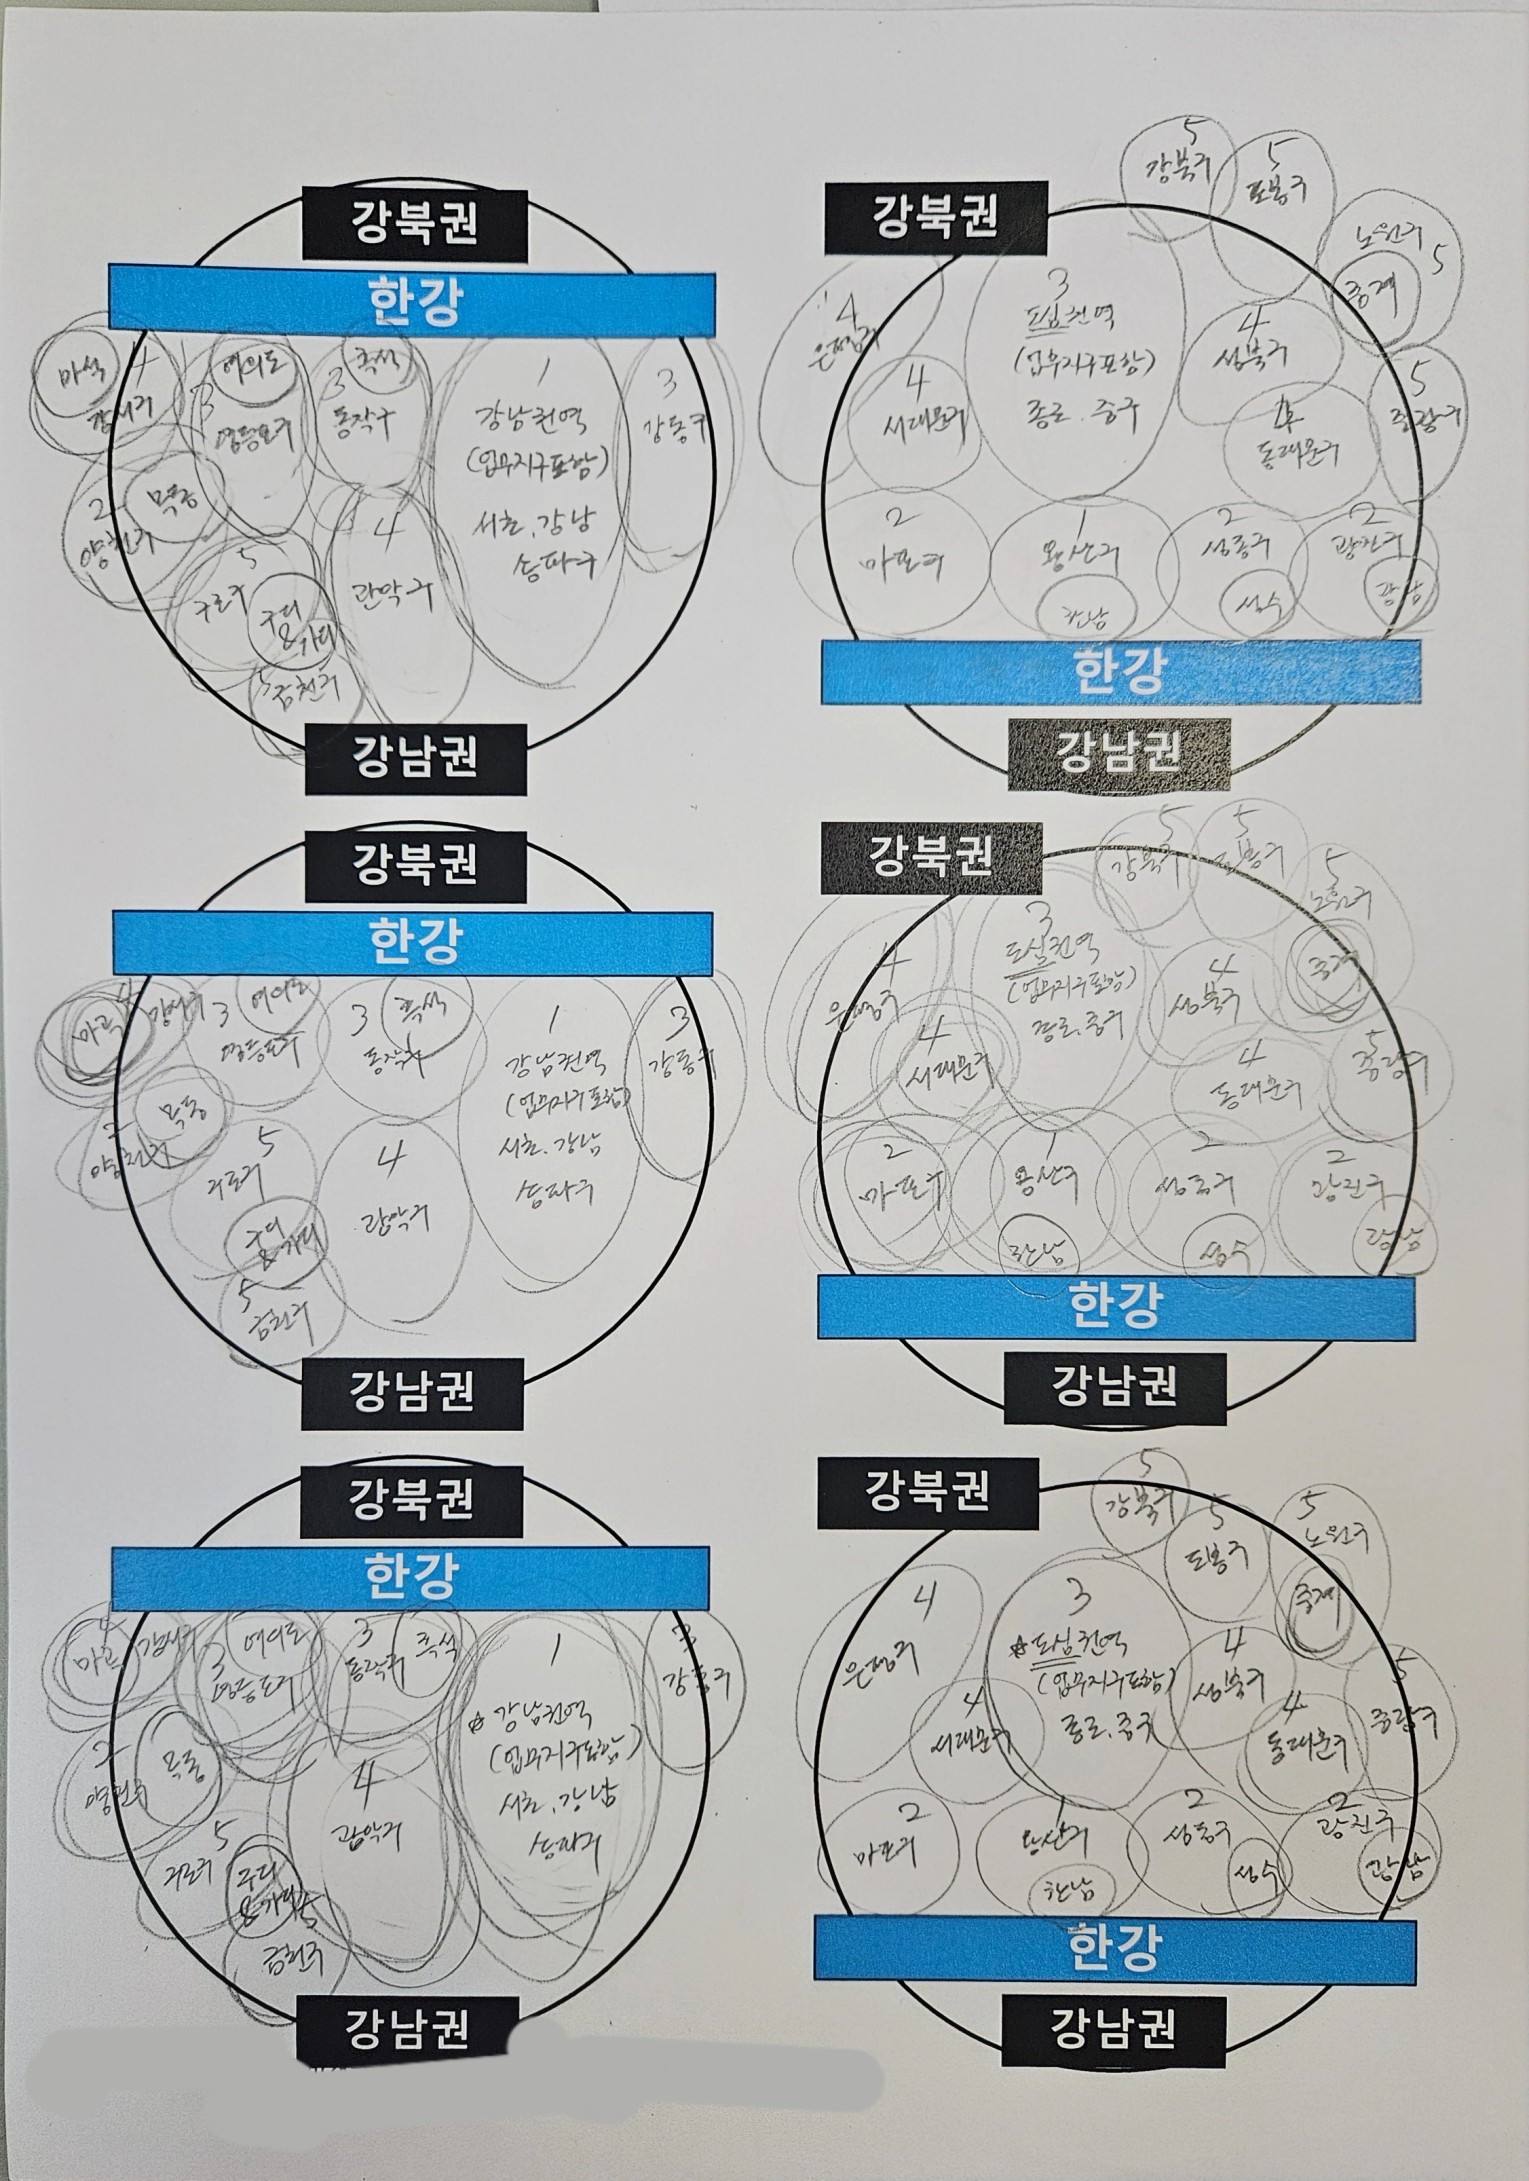 강북권
한강
마석
4
강서구
여의도
3
영등포구
흑석
3
동작구
1
강남권역
(업무지구포함)
서초, 강남
송파구
3
강동구
2
목동
양천구
5
구로구
구디
&가디
4
관악구
5
금천구
강남권
5
강북구
5
도봉구
노원구
5
중계
강북권
4
은평구
3
도심권역
(업무지구포함)
종로, 중구
4
성북구
4
서대문구
4
동대문구
5
중랑구
2
마포구
1
용산구
한남
2
성동구
성수
2
광진구
광남
한강
강남권
강북권
한강
4
마곡
강서구
3
여의도
영등포구
3
흑석
동작구
1
강남권역
(업무지구포함)
서초, 강남
송파구
3
강동구
2
목동
양천구
5
구로구
구디
&가디
4
관악구
5
금천구
강남권
강북권
5
강북구
5
도봉구
5
노원구
중계
4
은평구
3
도심권역
(업무지구포함)
종로, 중구
4
성북구
4
서대문구
4
동대문구
5
중랑구
2
마포구
1
용산구
한남
2
성동구
성수
2
광진구
광남
한강
강남권
강북권
한강
4
마곡
강서구
3
여의도
영등포구
3
흑석
동작구
1
☆강남권역
(업무지구포함)
서초, 강남
송파구
3
강동구
2
목동
양천구
5
구로구
구디
&가디
4
관악구
5
금천구
강남권
강북권
5
강북구
5
도봉구
5
노원구
중계
4
은평구
3
☆도심권역
(업무지구포함)
종로, 중구
4
성북구
4
서대문구
4
동대문구
5
중랑구
2
마포구
1
용산구
한남
2
성동구
성수
2
광진구
광남
한강
강남권